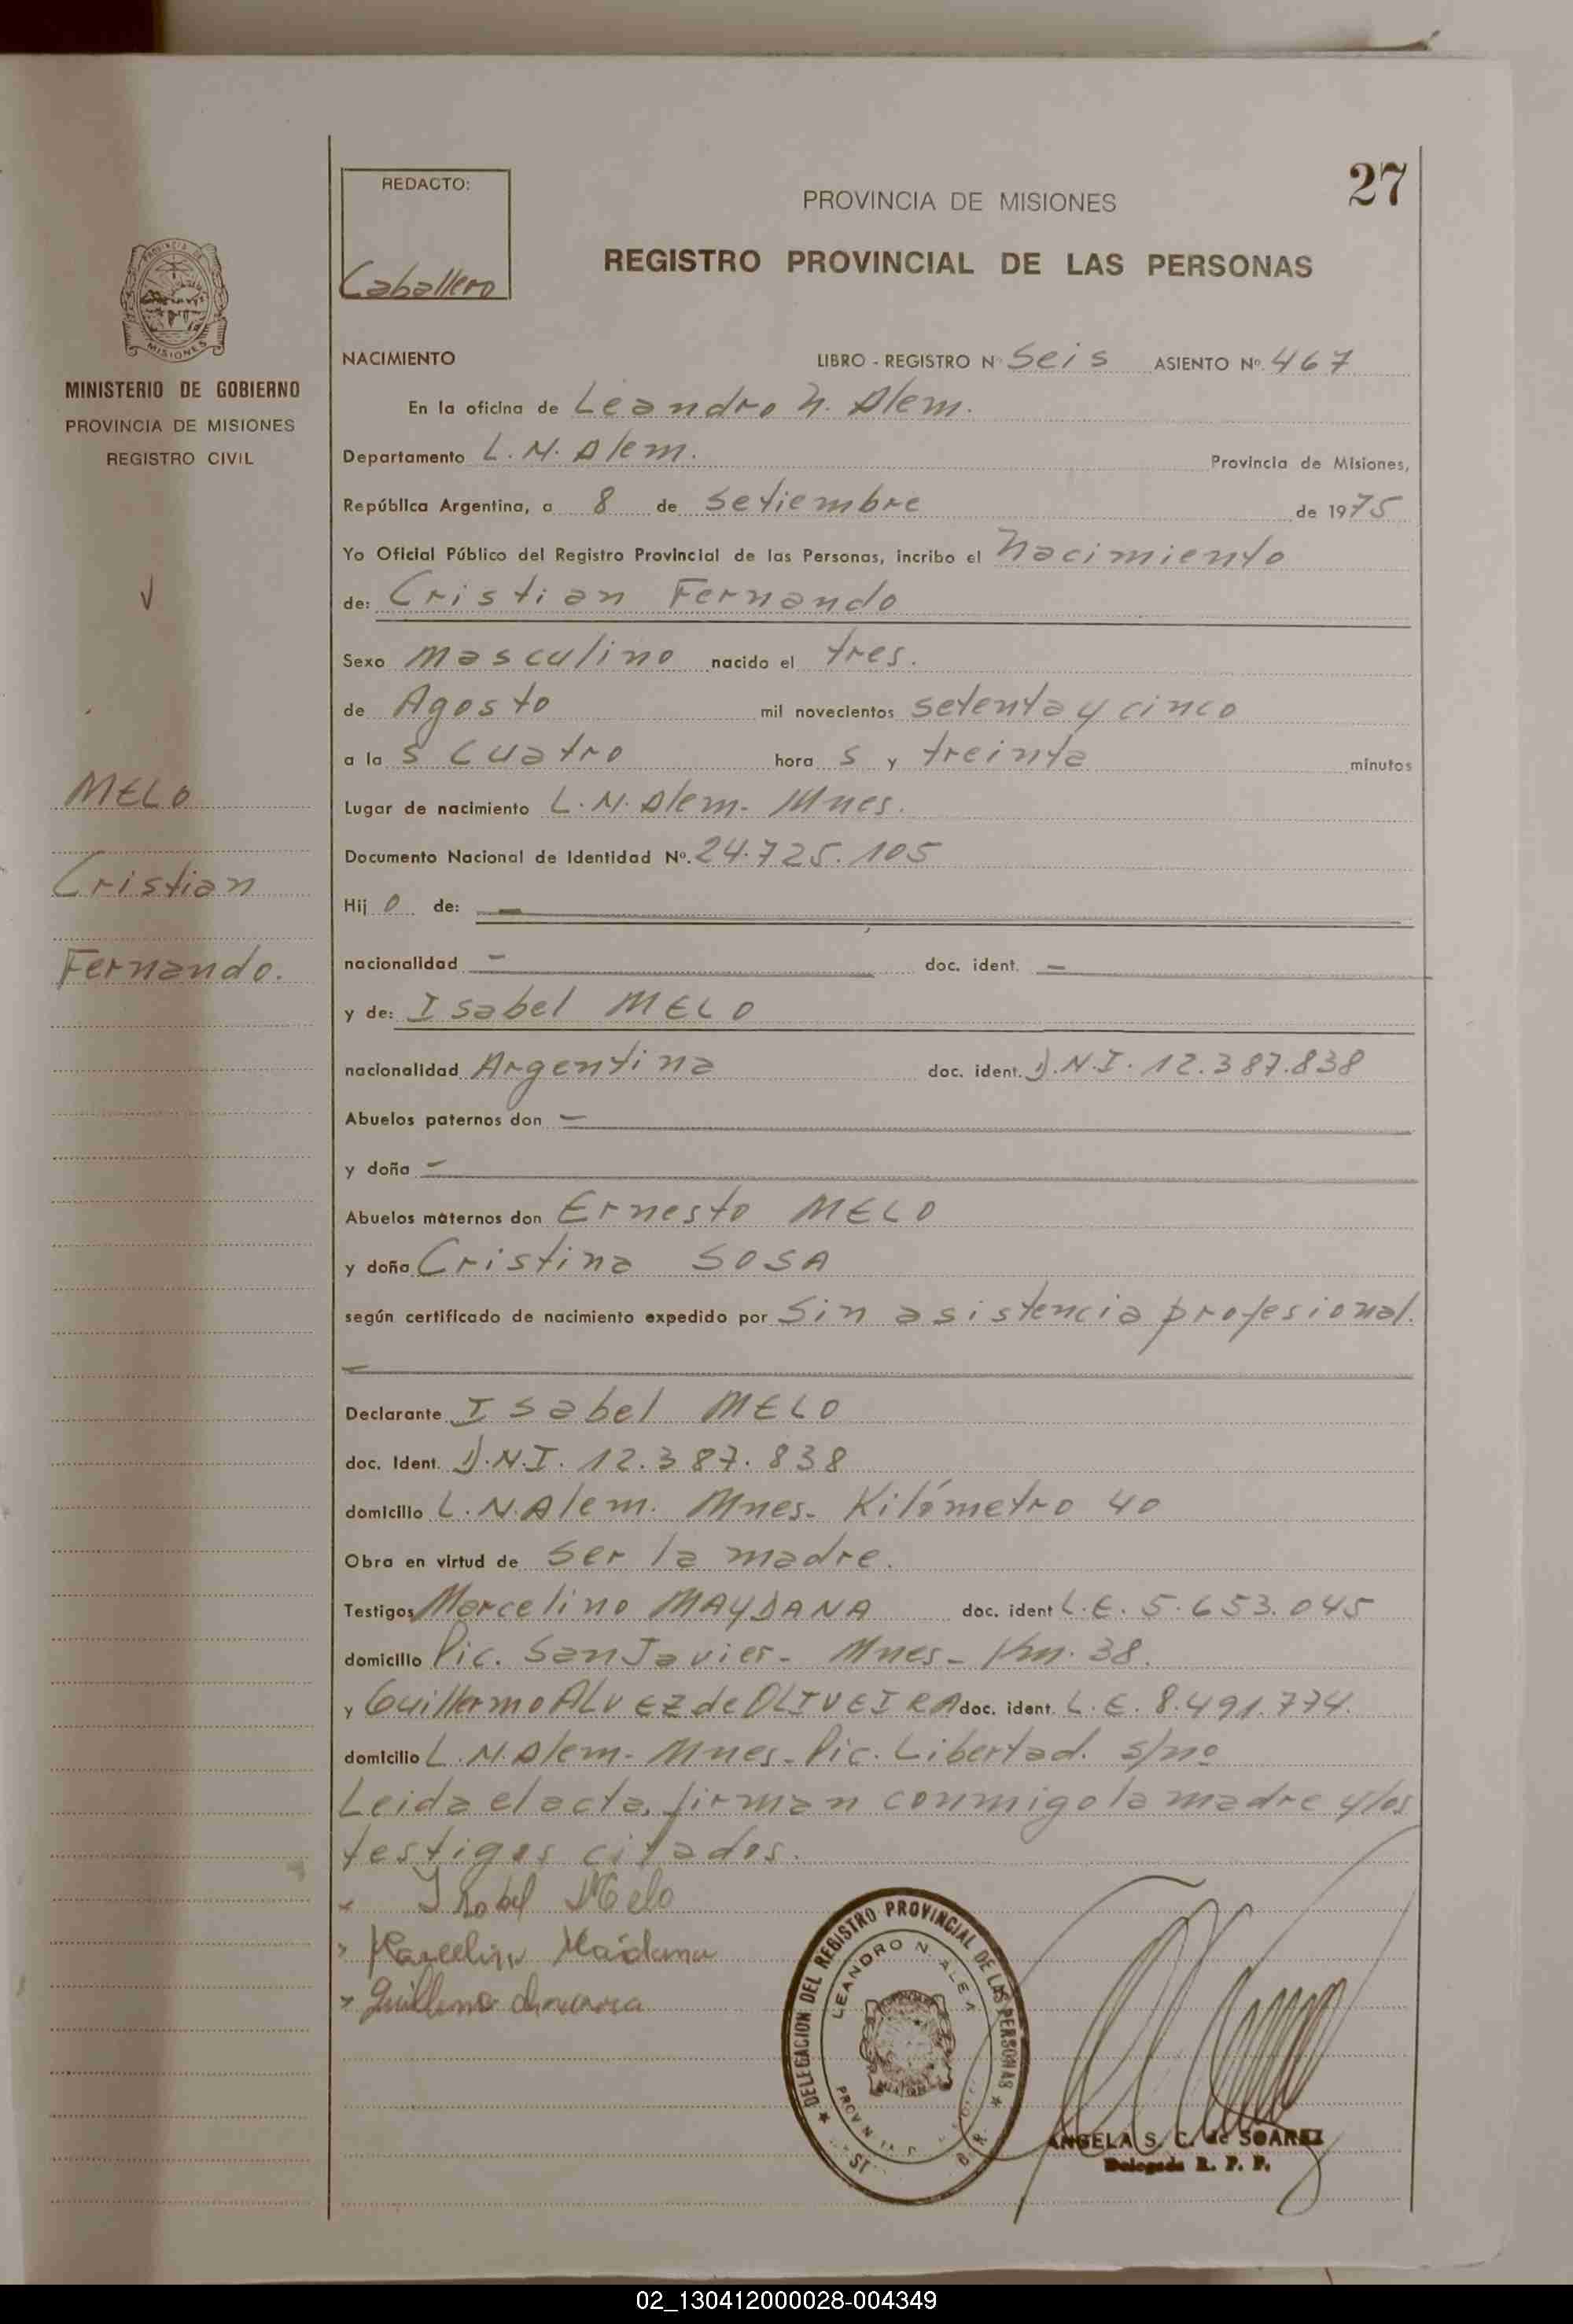 27
REDACTO:
Caballero
PROVINCIA DE MISIONES
REGISTRO PROVINCIAL DE LAS PERSONAS
MISIONES
MINISTERIO DE GOBIERNO
PROVINCIA DE MISIONES
REGISTRO CIVIL
MELO
Cristian
Fernando.
NACIMIENTO LIBRO - REGISTRO Nº Seis ASIENTO Nº. 467
En la oficina de Leandro N. Alem.
Departamento L. N. Alem. Provincia de Misiones,
República Argentina, a 8 de Setiembre de 1975
Yo Oficial Público del Registro Provincial de las Personas, incribo el Nacimiento
de: Cristian Fernando
Sexo Masculino nacido el tres.
de Agosto mil novecientos setenta y cinco
a la s cuatro hora s y treinta minutos
Lugar de nacimiento L. N. Alem - Mnes.
Documento Nacional de Identidad Nº. 24.725.105
Hij o de: —
nacionalidad — doc. ident. —
y de: Isabel MELO
nacionalidad Argentina doc. ident. D.N.I. 12.387.838
Abuelos paternos don —
y doña —
Abuelos maternos don Ernesto MELO
y doña Cristina SOSA
según certificado de nacimiento expedido por Sin asistencia profesional.
Declarante Isabel MELO
doc. Ident. D.N.I. 12.387.838
domicilio L. N. Alem. Mnes. Kilómetro 40
Obra en virtud de ser la madre.
Testigos Marcelino MAYDANA doc. ident L.E. 5.653.045
domicilio Pic. San Javier - Mnes - Km. 38.
y Guillermo ALVEZ de OLIVEIRA doc. ident. L.E. 8.491.774.
domicilio L. N. Alem - Mnes - Pic. Libertad. s/nº
Leida el acta, firman conmigo la madre y los
testigos citados.
Isabel Melo
Marcelino Maidana
Guillermo
DELEGACION DEL REGISTRO PROVINCIAL DE LAS PERSONAS
LEANDRO N. ALEM
ANGELA S. C. de SOAREZ
Delegada R. P. P.
02_130412000028-004349